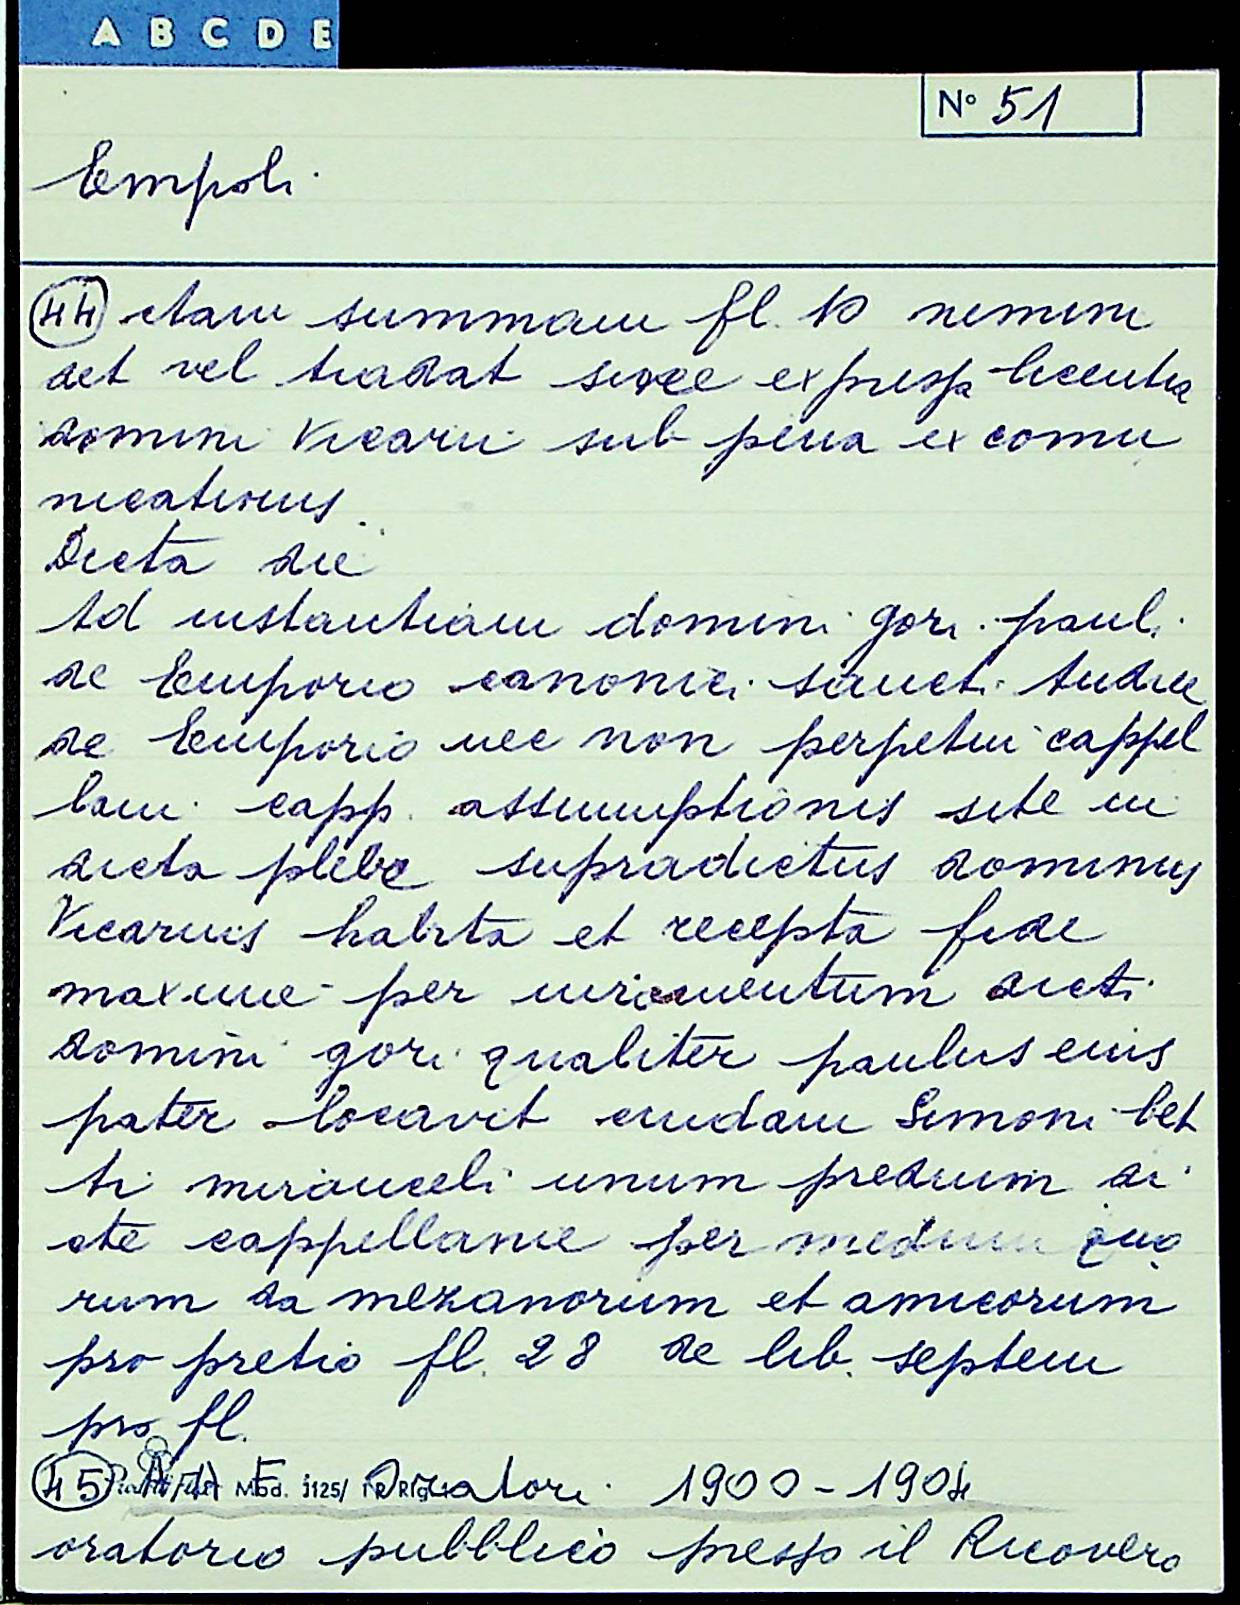 A B C D E
N° 51
Empoli
44 ctam summam fl. 10 nemini
det vel tradat sine expressa licentia
domini Vicarii sub pena excomu
nicationis.
Dicta die
Ad instantiam domini gori pauli
de Emporio canonici sancti Andree
de Emporio nec non perpetui cappel
lani capp. assumptionis site in
dicta plebe supradictus dominus
Vicarius habita et recepta fide
maxime per iuramentum dicti
domini gori qualiter paulus eius
pater locavit cuidam Simoni bet
ti miranceli unum predium di
cte cappellanie per medium quo
rum da mezanorum et amicorum
pro pretio fl. 28 de lib. septem
pro fl.
45 Mod. 1125/ Oratori 1900-1904
oratorio pubblico presso il Ricovero